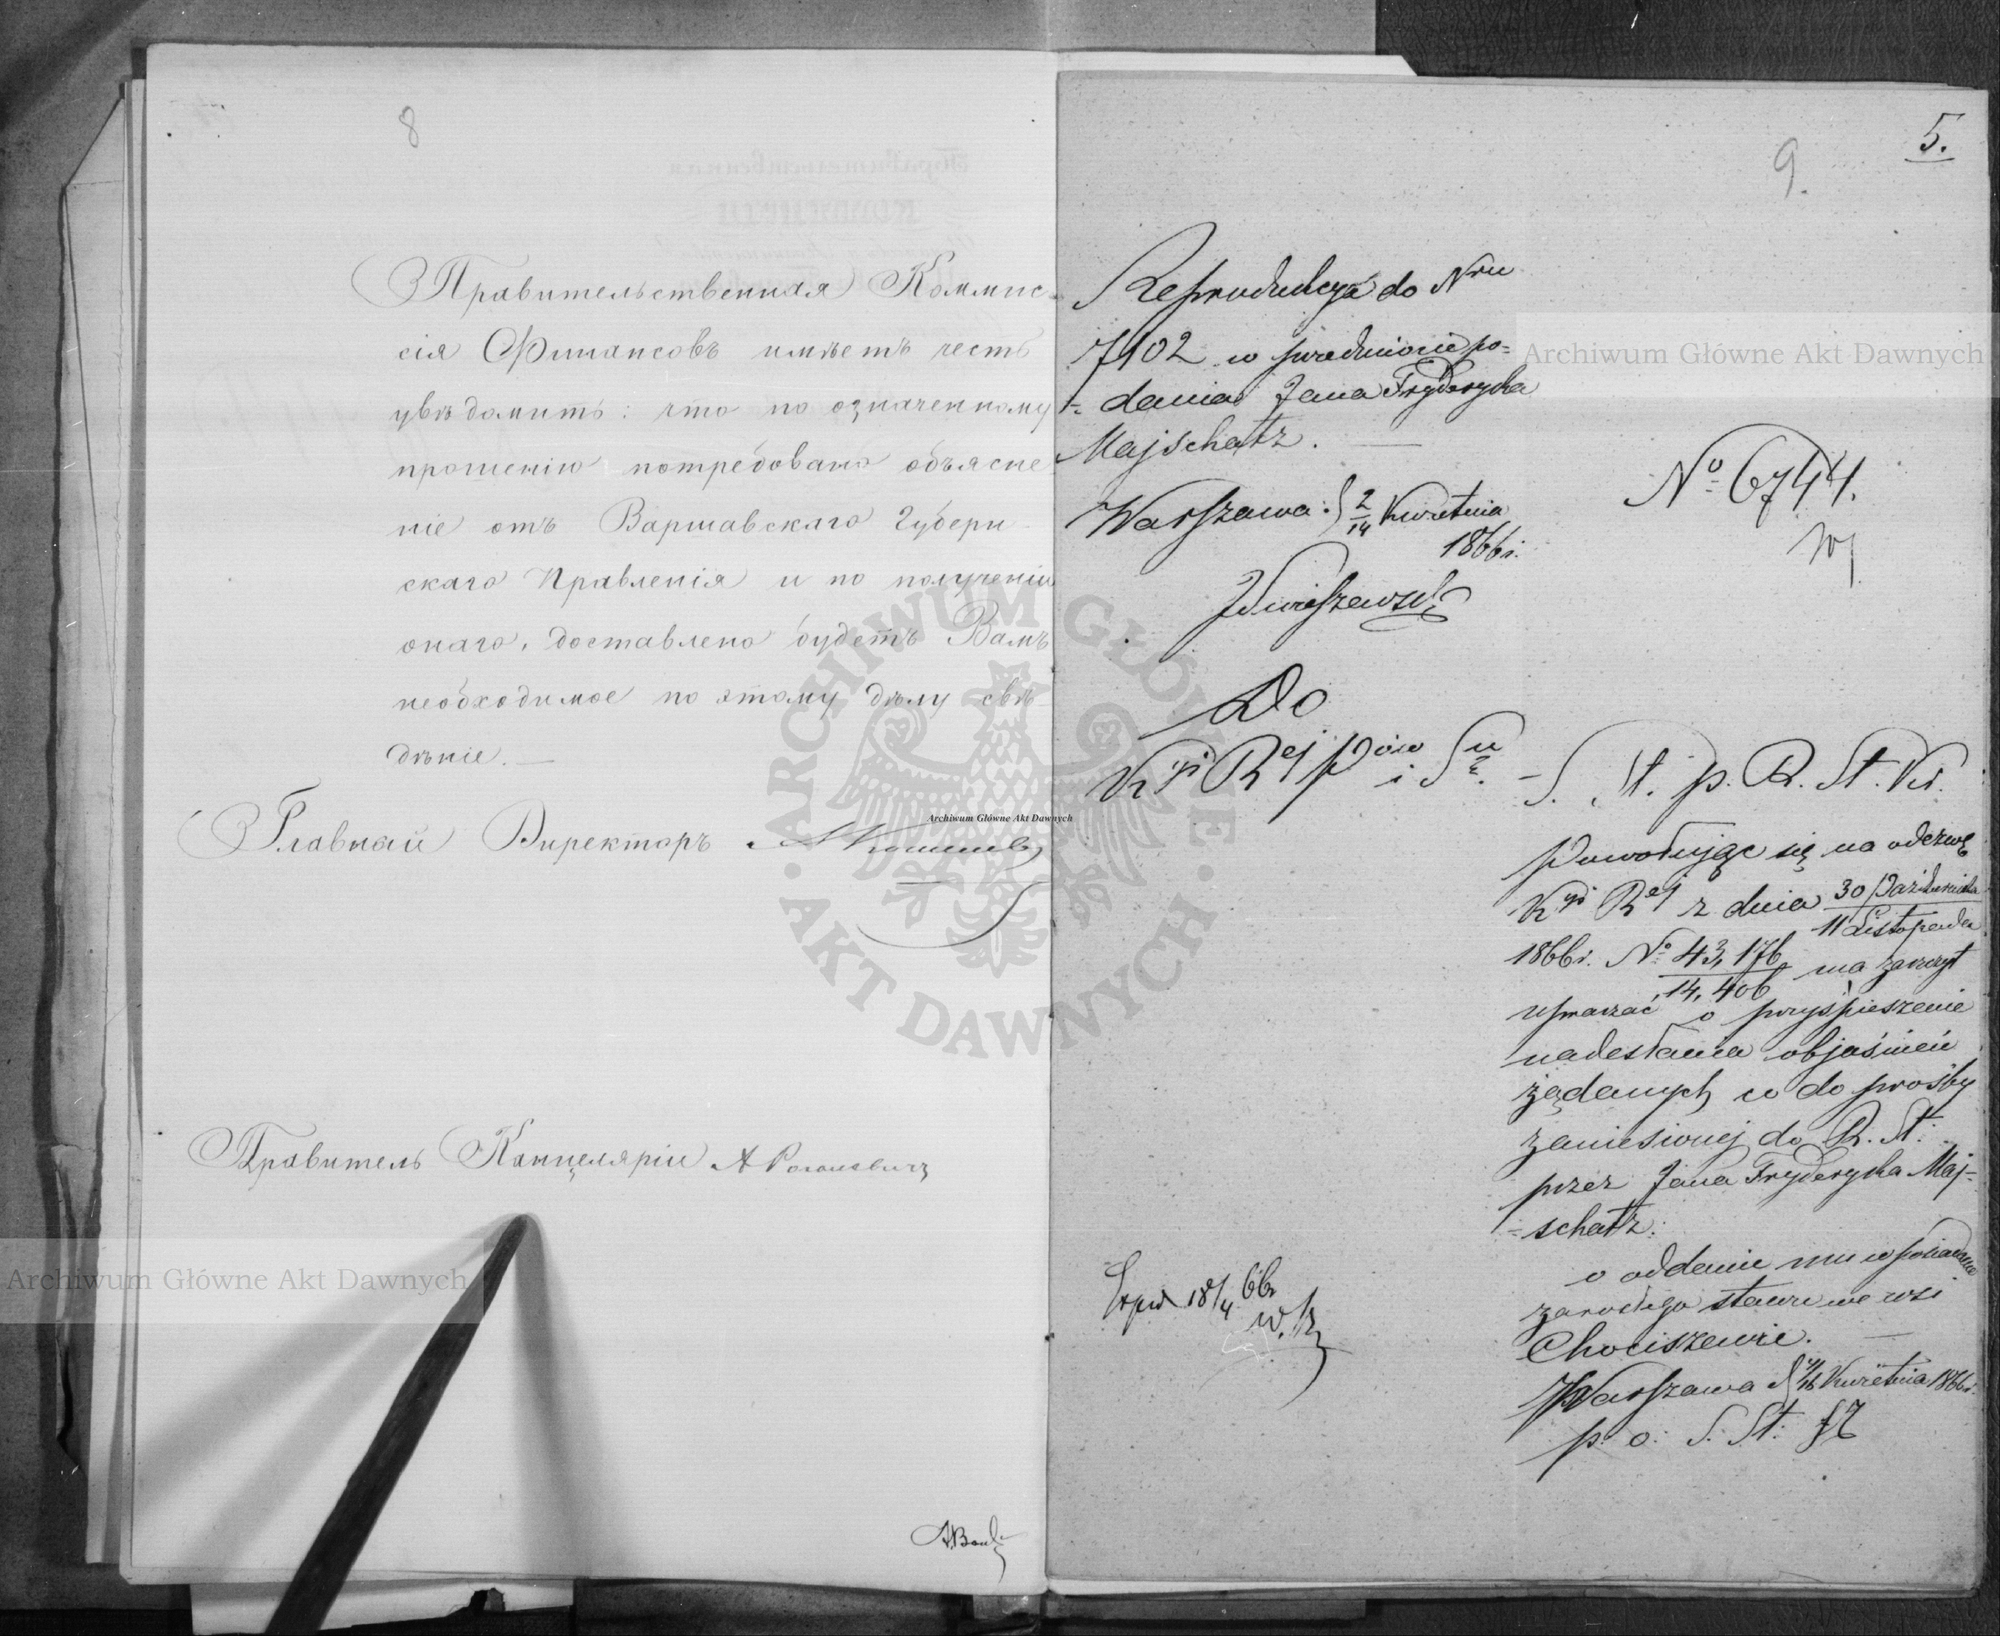 8
Правительственная Коммис-
сія Финансовъ имѣетъ честь
увѣдомить: что по означенному
прошенію потребовано объясне-
ніе отъ Варшавскаго Губерн-
скаго Правленія и по полученіи
онаго, доставлено будетъ Вамъ
необходимое по этому дѣлу свѣ-
дѣніе. —
Главный Директоръ
Правитель Канцеляріи
9.
5.
Reprodukcya do Nru
7102 w przedmiocie po=
=dania Jana Fryderyka
Majschatz. —
Warszawa d 2/14 Kwietnia
1866 r.
No 6744.
Do
Kyi Rej Pów i Su
S. St. p. R. St. Kr.
Powołując się na odezwę
Kyi Rej z dnia 30 Października
11 Listopada
1866 r. No 43,176 / 14,406 ma zaszczyt
upraszać o przyśpieszenie
nadesłania objaśnień
żądanych co do prośby
zaniesionej do R. St:
przez Jana Fryderyka Maj=
=schatz:
o oddanie mu w posiadanie
zarosłego stawu we wsi
Chociszewie. —
Warszawa d 4/16 Kwietnia 1866 r.
p. o. S. St:
18/4 66
Archiwum Główne Akt Dawnych
Archiwum Główne Akt Dawnych
Archiwum Główne Akt Dawnych
ARCHIWUM GŁÓWNE · AKT DAWNYCH ·